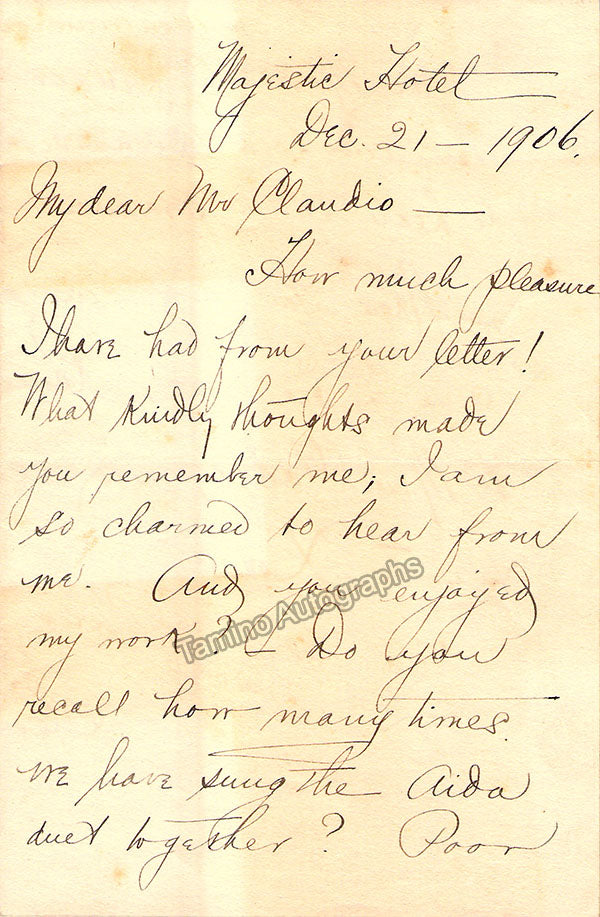 Majestic Hotel
Dec. 21 — 1906.
My dear Mr Claudio —
How much pleasure
I have had from your letter!
What kindly thoughts made
you remember me; I am
so charmed to hear from
me. And you enjoyed
my work? — Do you
recall how many times
we have sung the Aida
duet together? Poor
Tamino Autographs